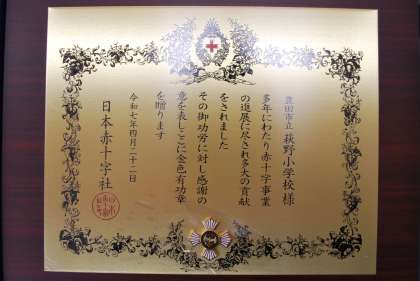 豊田市立 萩野小学校 様
多年にわたり赤十字事業
の進展に尽され多大の貢献
をされました
その御功労に対し感謝の
意を表しここに金色有功章
を贈ります
令和七年四月二十二日
日本赤十字社